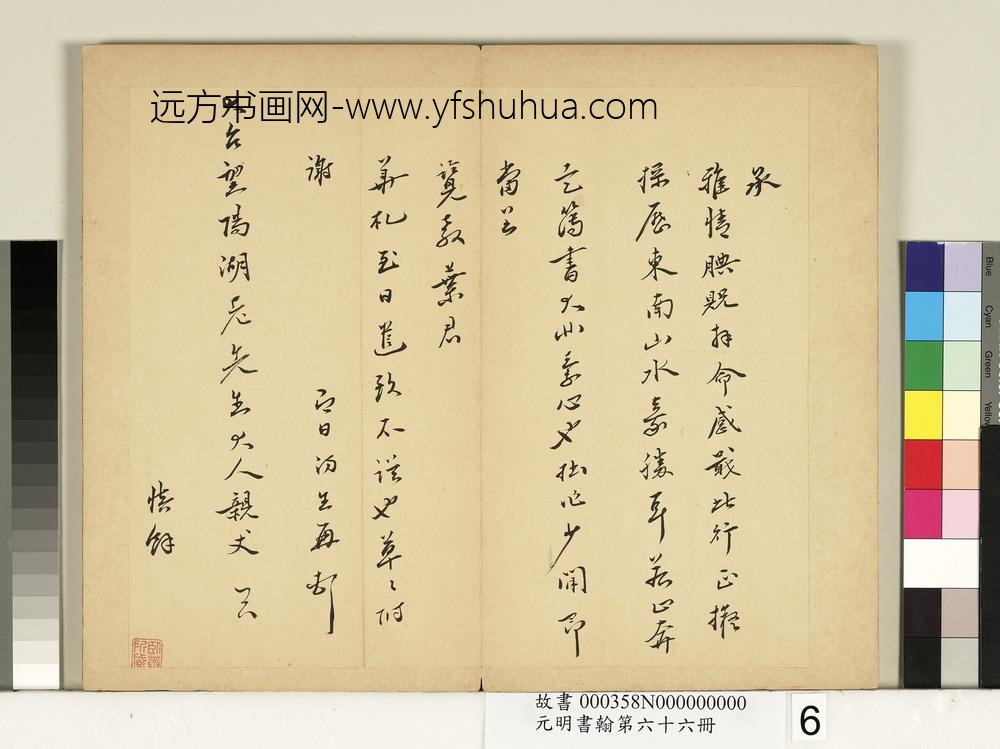 远方书画网-www.yfshuhua.com
承
雅情腆貺拜命感戢此行正擬
探歷東南山水豪勝耳若止奔
走簿書大非素心也拙作少閒即
當呈
覽教葉君
華札至日致不誤也草〻附
謝
日治生再
台望陽湖老先生大人親丈
慎餘
故書 000358N000000000
元明書翰第六十六冊
6
Blue
Cyan
Green
Yellow